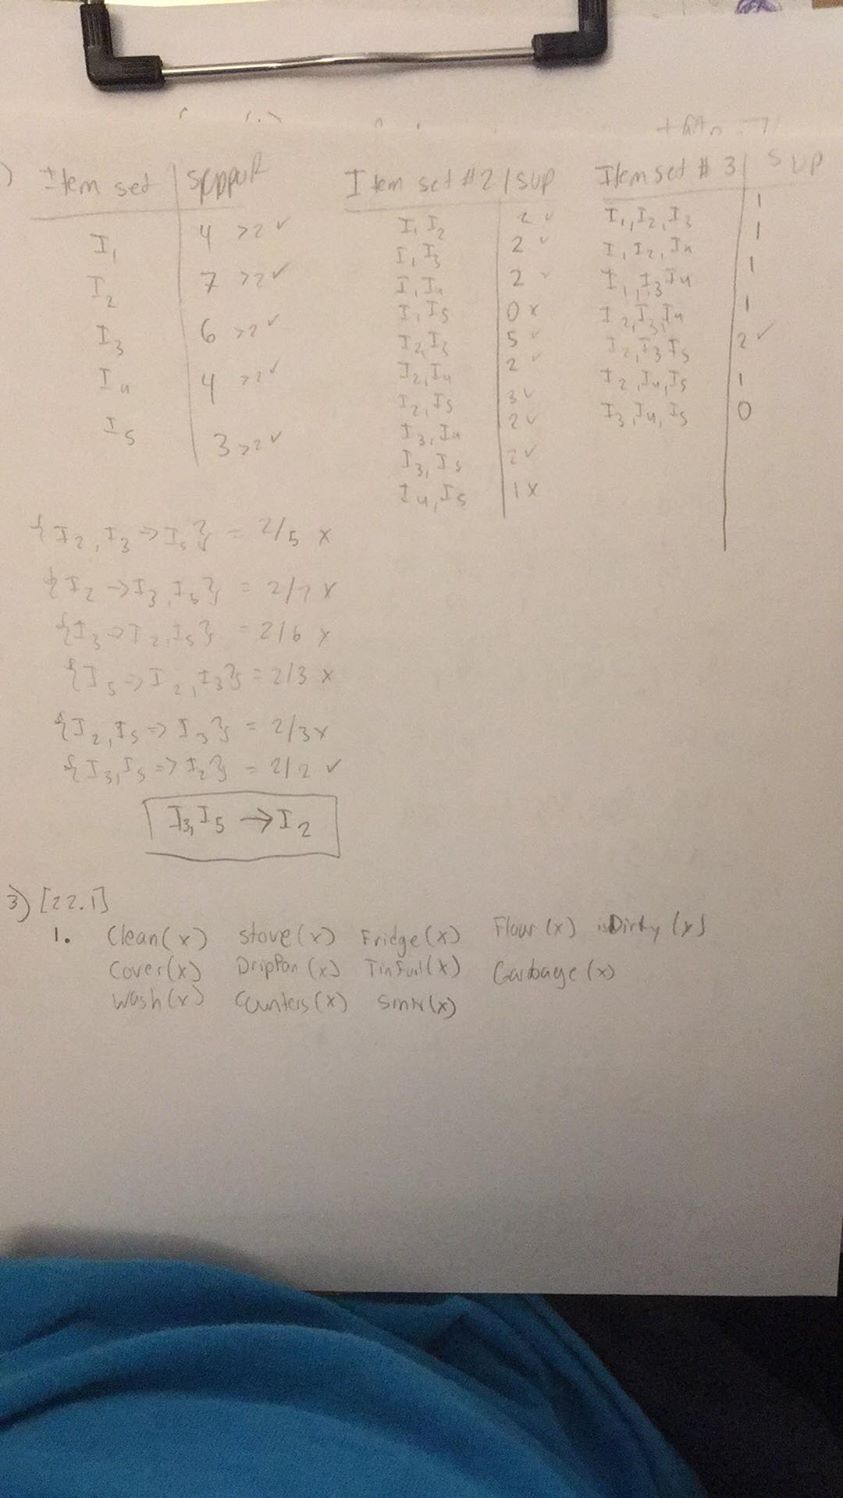 Item set | support
I1 4 >2 ✓
I2 7 >2 ✓
I3 6 >2 ✓
I4 4 >2 ✓
I5 3 >2 ✓
Item set #2 | sup
I, I2 2 ✓
I, I3 2 ✓
I, I4 2 ✓
I, I5 0 x
I2, I3 5 ✓
I2, I4 2 ✓
I2, I5 3 ✓
I3, I4 2 ✓
I3, I5 2 ✓
I4, I5 1 x
Item set # 3 | sup
I1, I2, I3 1
I, I2, I4 1
I1, I3, I4 1
I2, I3, I4 1
I2, I3, I5 2 ✓
I2, I4, I5 1
I3, I4, I5 0
{I2, I3 => I5} = 2/5 x
{I2 -> I3, I5} = 2/7 x
{I3 -> I2, I5} = 2/6 x
{I5 => I2, I3} = 2/3 x
{I2, I5 => I3} = 2/3 x
{I3, I5 => I2} = 2/2 ✓
I3, I5 -> I2
3) [22.1]
1. Clean(x) stove(x) Fridge(x) Floor(x) isDirty(x)
Cover(x) DripPan(x) TinFoil(x) Garbage(x)
Wash(x) Counters(x) Sink(x)